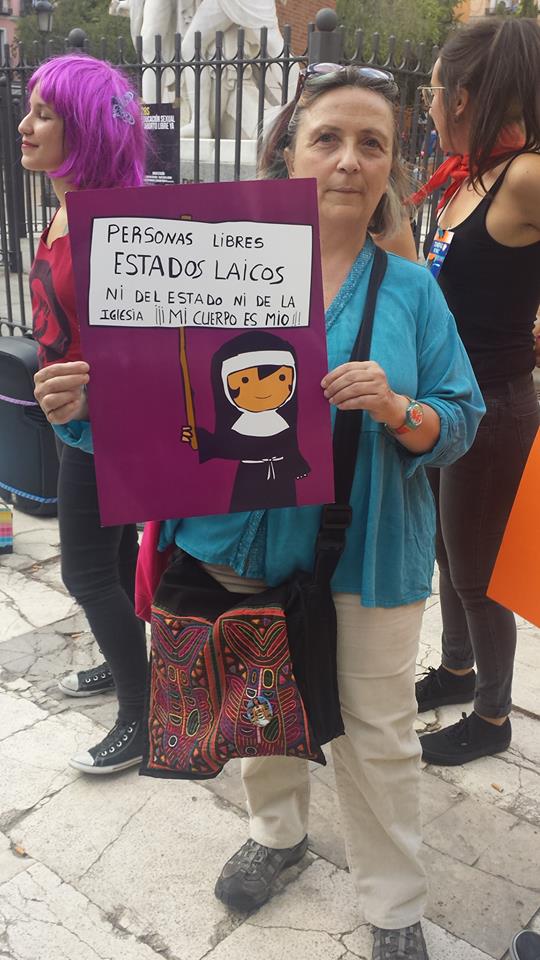 PERSONAS LIBRES
ESTADOS LAICOS
NI DEL ESTADO NI DE LA
IGLESIA ¡¡¡ MI CUERPO ES MIO !!!
28S
EDUCACIÓN SEXUAL
ABORTO LIBRE YA